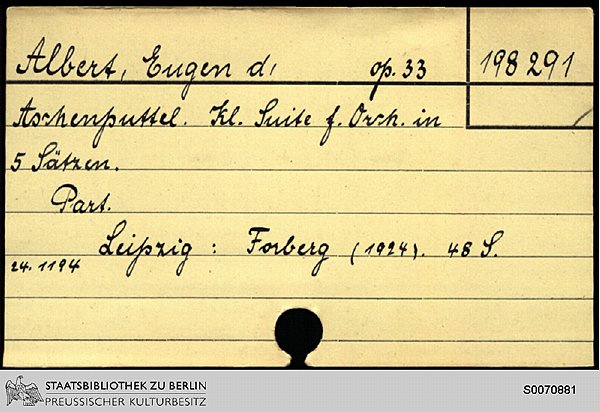 Albert, Eugen d' op. 33 198 291
Aschenputtel. Kl. Suite f. Orch. in
5 Sätzen.
Part.
Leipzig : Forberg (1924). 48 S.
24. 1194
STAATSBIBLIOTHEK ZU BERLIN
PREUSSISCHER KULTURBESITZ
S0070881